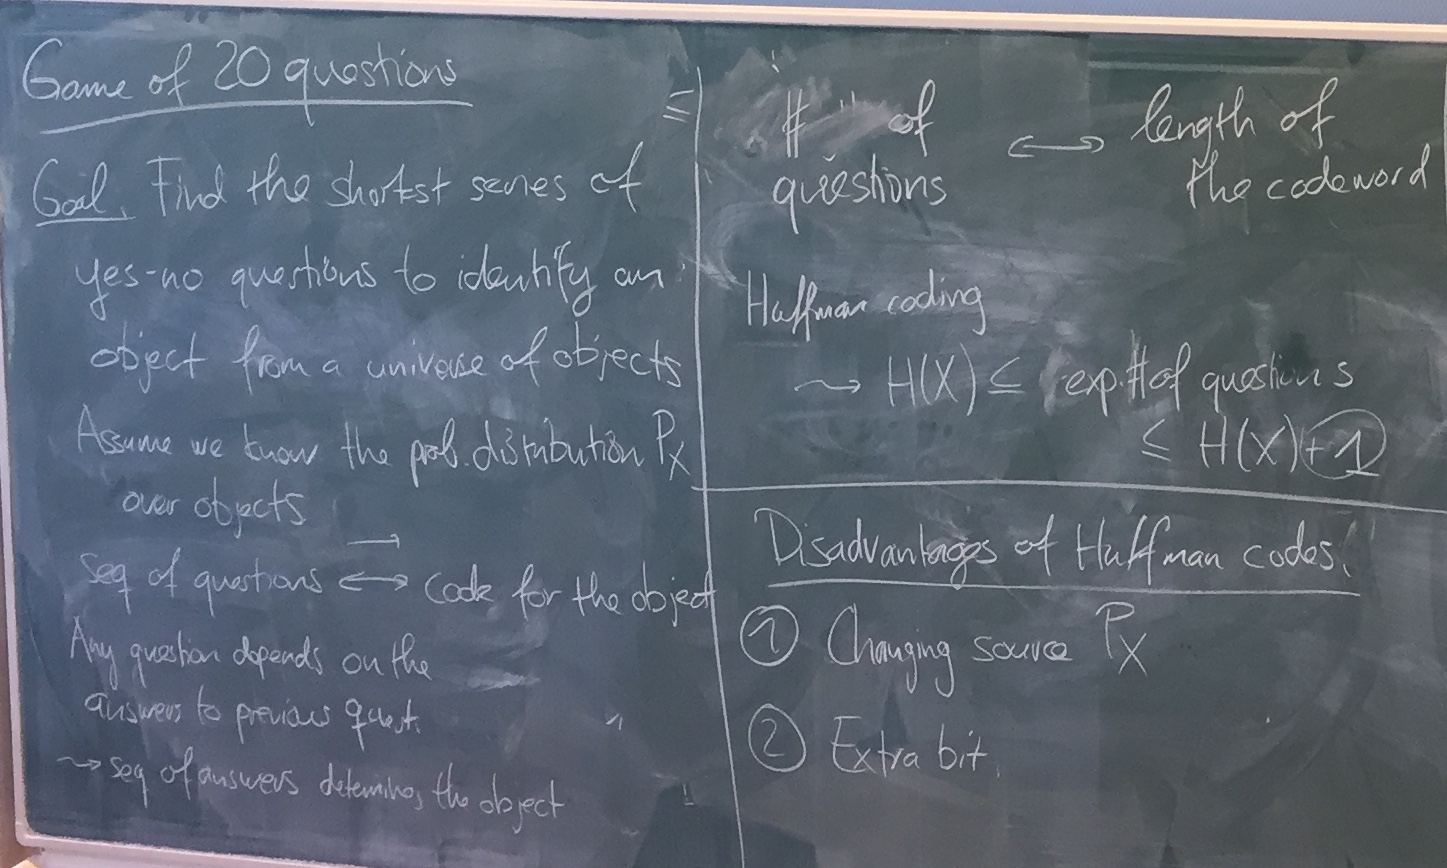 Game of 20 questions
Goal. Find the shortest series of
yes-no questions to identify an
object from a universe of objects
Assume we know the prob. distribution P_X
over objects
Seq of questions ↔ code for the object
Any question depends on the
answers to previous quest.
⇝ seq of answers determines the object
# of questions ↔ length of the codeword
Huffman coding
⇝ H(X) ≤ exp. # of questions
≤ H(X) + 1
Disadvantages of Huffman codes.
① Changing source P_X
② Extra bit.